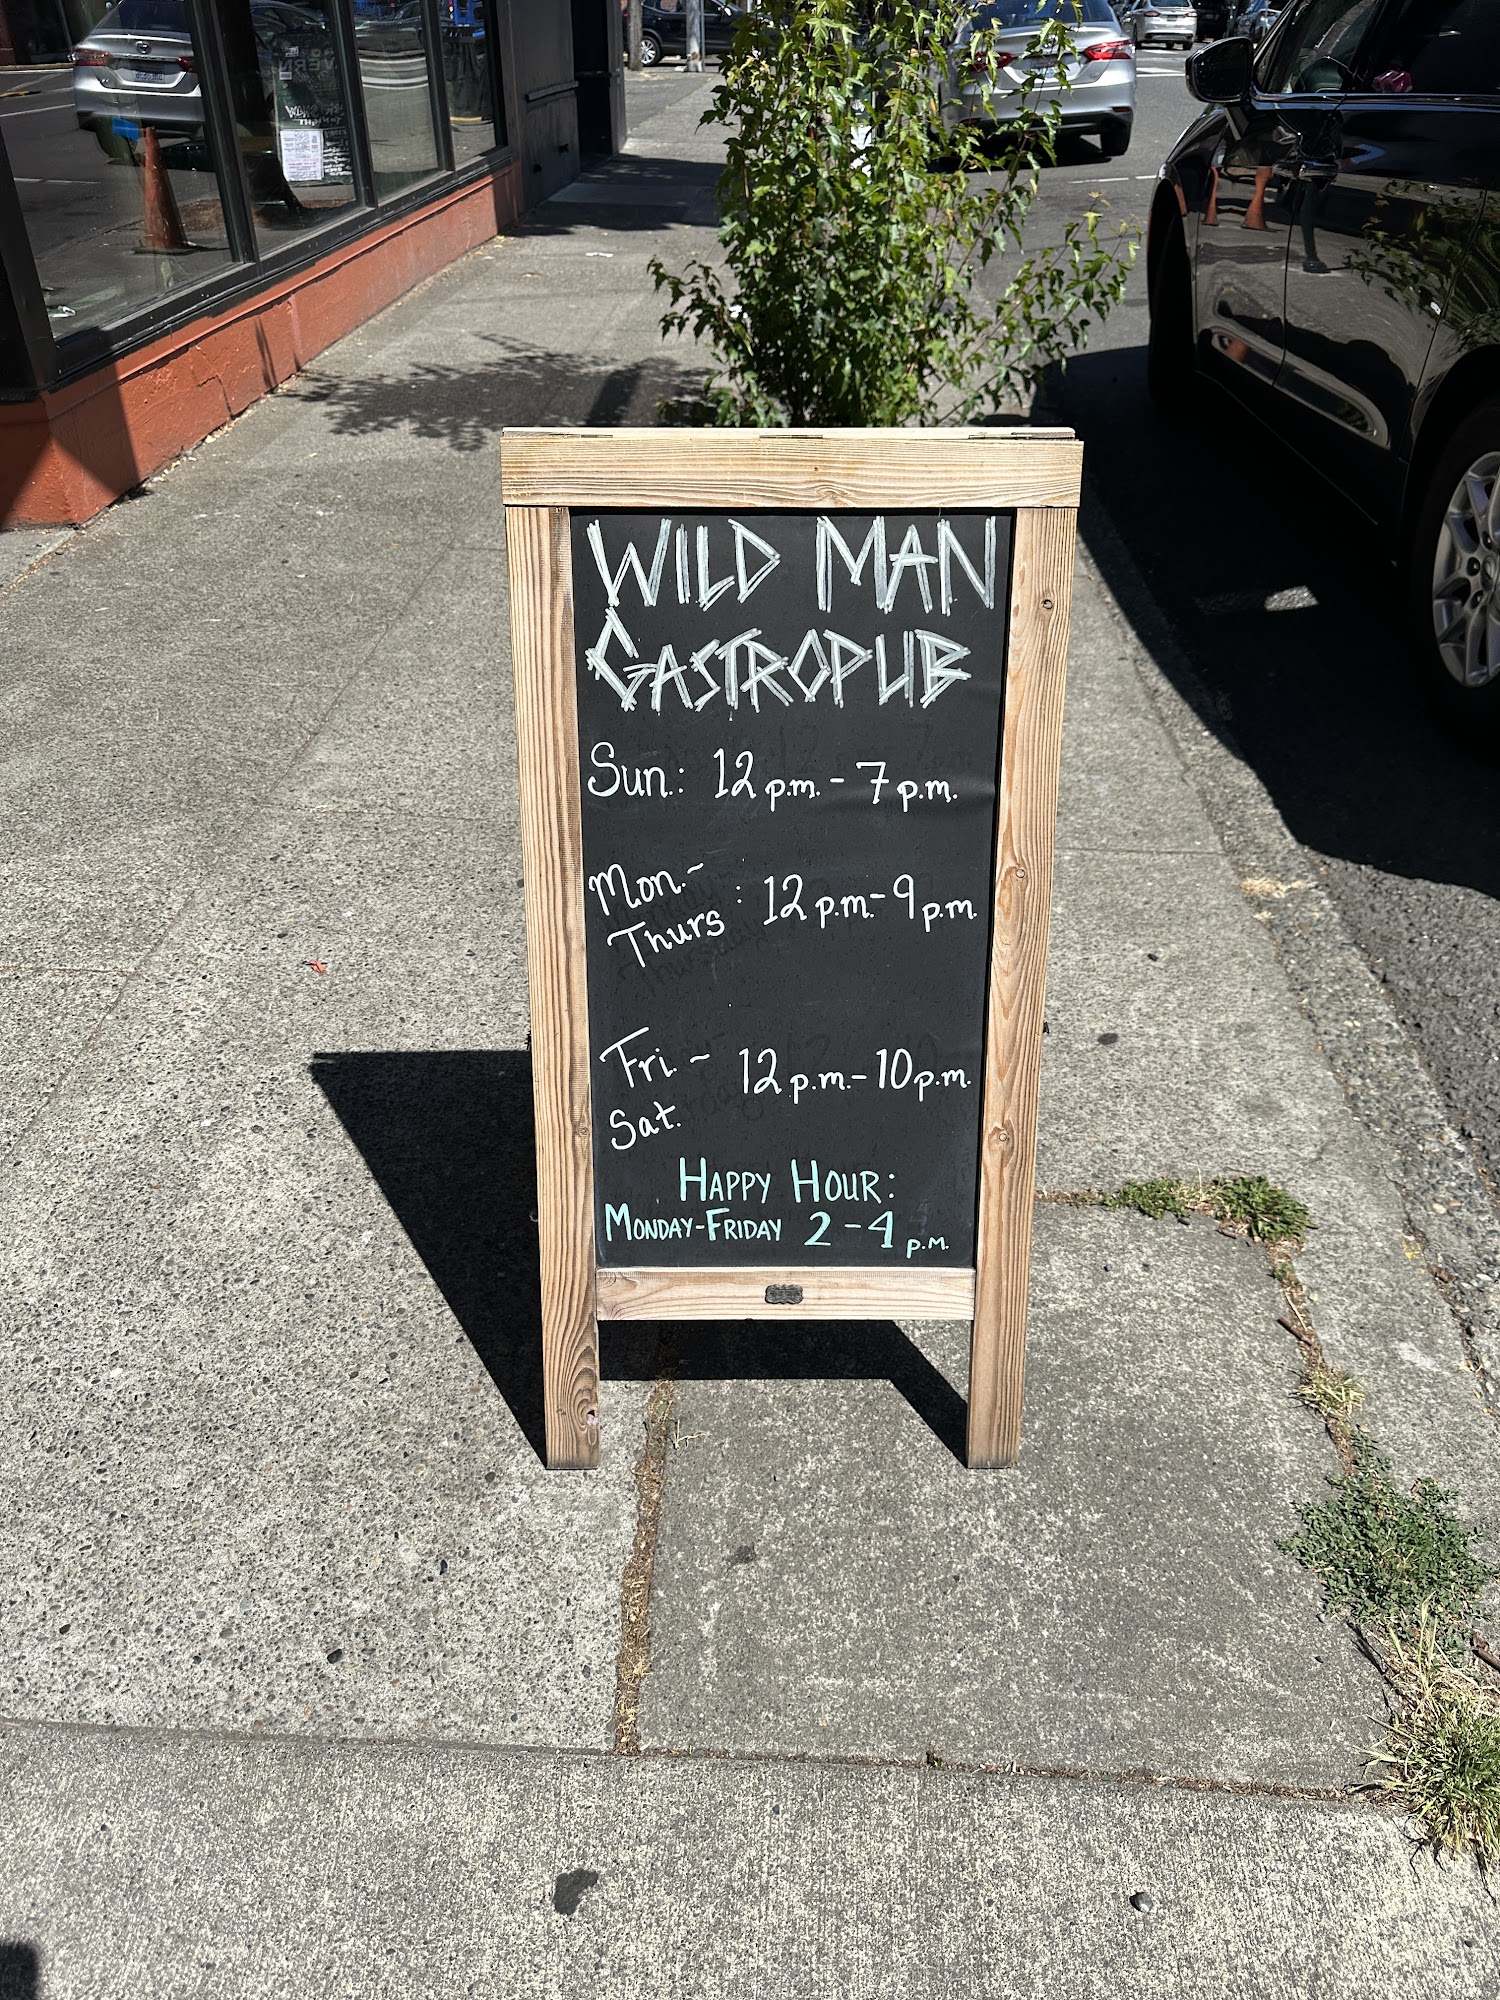 WILD MAN
GASTROPUB
Sun.: 12 p.m. - 7 p.m.
Mon.~
Thurs : 12 p.m. - 9 p.m.
Fri. ~ 12 p.m. - 10 p.m.
Sat.
HAPPY HOUR:
MONDAY-FRIDAY 2-4 P.M.